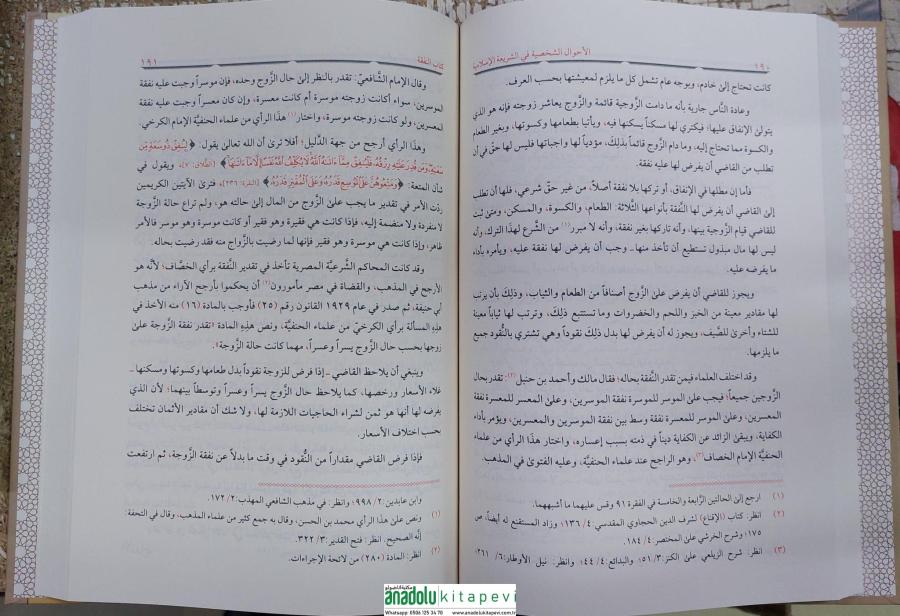 ١٩٠
الأحوال الشخصية في الشريعة الإسلامية
كانت تحتاج إلى خادم، وبوجه عام تشمل كل ما يلزم لمعيشتها بحسب العرف.
وعادة النَّاس جارية بأنه ما دامت الزَّوجية قائمة والزَّوج يعاشر زوجته فإنه هو الذي
يتولى الإنفاق عليها؛ فيكتري لها مسكناً يسكنها فيه، ويأتيا بطعامها وكسوتها، وبغير الطعام
والكسوة مما تحتاج إليه، وما دام الزَّوج قائماً بذلك، مؤدياً لها واجباتها فليس لها حق في أن
تطلب من القاضي أن يفرض لها عليه نفقة.
فأما إن مطلها في الإنفاق، أو تركها بلا نفقة أصلاً، من غير حق شرعي، فلها أن تطلب
إلى القاضي أن يفرض لها النَّفقة بأنواعها الثَّلاثة: الطعام، والكسوة، والمسكن، ومتى ثبت
للقاضي قيام الزَّوجية بينهما، وأنه تاركها بغير نفقة، وأنه لا مبرر(١) من الشَّرع لهذا الترك، وأنه
ليس لها مال مبذول تستطيع أن تأخذ منها.. وجب أن يفرض لها نفقة عليه، ويأمره بأداء
ما يفرضه عليه.
ويجوز للقاضي أن يفرض على الزَّوج أصنافاً من الطعام والثياب، وذلك بأن يرتب
لها مقادير معينة من الخبز واللحم والخضروات وما تستتبع ذلك، وترتب لها ثياباً معينة
للشتاء وأخرى للصَّيف، ويجوز له أن يفرض لها بدل ذلك نقوداً وهي تشتري بالنُّقود جميع
ما يلزمها.
وقد اختلف العلماء فيمن تقدر النَّفقة بحاله؛ فقال مالك وأحمد بن حنبل(٢): تقدر بحال
الزَّوجين جميعاً؛ فيجب على الموسر للموسرة نفقة الموسرين، وعلى المعسر للمعسرة نفقة
المعسرين، وعلى الموسر للمعسرة نفقة وسط بين نفقة الموسرين والمعسرين، ويؤمر بأداء
الكفاية. ويبقى الزائد عن الكفاية ديناً في ذمته بسبب إعساره، واختار هذا الرأي من علماء
الحنفيَّة الإمام الخصاف(٣)، وهو الراجح عند علماء الحنفية، وعليه الفتوى في المذهب.
(١) ارجع إلى الحالتين الرَّابعة والخامسة في الفقرة ٩١ وقس عليهما ما أشبههما.
(٢) انظر: كتاب (الإقناع) لشرف الدين الحجاوي المقدسي ٤/ ١٣٦؛ وزاد المستقنع له أيضاً، ص
١٧٥ وشرح الخرشي على المختصر: ٤/ ١٨٤.
(٣) انظر: شرح الزيلعي على الكنز: ٣/ ٥١؛ والبدائع: ٤/ ٤٤؛ وانظر: نيل الأوطار: ٦/ ٢٦١؛
كتاب النفقة
١٩١
وقال الإمام الشَّافعيّ: تقدر بالنظر إلى حال الزَّوج وحده، فإن موسراً وجبت عليه نفقة
الموسرين، سواء أكانت زوجته موسرة أم كانت معسرة، وإن كان معسراً وجب عليه نفقة
المعسرين، ولو كانت زوجته موسرة، واختار(١) هذا الرأي من علماء الحنفيَّة الإمام الكرخي.
وهذا الرأي أرجح من جهة الدَّليل؛ أفلا ترى أن الله تعالى يقول: ﴿لِيُنفِقْ ذُو سَعَةٍ مِّن
سَعَتِهِ وَمَن قُدِرَ عَلَيْهِ رِزْقُهُ فَلْيُنفِقْ مِمَّا آتَاهُ اللَّهُ لَا يُكَلِّفُ اللَّهُ نَفْسًا إِلَّا مَا آتَاهَا﴾ [الطَّلاق: ٧]، ويقول في
شأن المتعة: ﴿وَمَتِّعُوهُنَّ عَلَى الْمُوسِعِ قَدَرُهُ وَعَلَى الْمُقْتِرِ قَدَرُهُ﴾ [البقرة: ٢٣٦]، فترى الآيتين الكريمين
ردَّت الأمر في تقدير ما يجب على الزَّوج من المال إلى حاله هو، ولم تراع حالة الزَّوجة
لا منفردة ولا منضمة إليه، فإذا كانت هي فقيرة وهو فقير أو كانت موسرة وهو موسر فالأمر
ظاهر، وإذا كانت هي موسرة وهو فقير فإنها لما رضيت بالزَّواج منه فقد رضيت بحاله.
وقد كانت المحاكم الشرعيَّة المصرية تأخذ في تقدير النَّفقة برأي الخصَّاف؛ لأنَّه هو
الأرجح في المذهب، والقضاة في مصر مأمورون(٢) أن يحكموا بأرجح الآراء من مذهب
أبي حنيفة، ثم صدر في عام ١٩٢٩ القانون رقم (٢٥) فأوجب بالمادة (١٦) منه الأخذ في
هذه المسألة برأي الكرخيّ من علماء الحنفيَّة، ونص هذه المادة «تقدر نفقة الزَّوجة على
زوجها بحسب حال الزَّوج يسراً وعسراً، مهما كانت حالة الزَّوجة».
وينبغي أن يلاحظ القاضي ـ إذا فرض للزوجة نقوداً بدل طعامها وكسوتها ومسكنها ـ
غلاء الأسعار ورخصها، كما يلاحظ حال الزَّوج يسراً وعسراً وتوسطاً بينهما؛ لأن الذي
يفرضه لها أنها هو ثمن لشراء الحاجيات اللازمة لها، ولا شك أن مقادير الأثمان تختلف
بحسب اختلاف الأسعار.
فإذا فرض القاضي مقداراً من النُّقود في وقت ما بدلاً عن نفقة الزَّوجة، ثم ارتفعت
وابن عابدين: ٢/ ٩٩٨؛ وانظر: في مذهب الشافعي المهذب: ٢/ ١٧٢.
(١) ونص على هذا الرأي محمد بن الحسن، وقال به جمع كثير من علماء المذهب، وقال في التحفة:
إنَّه الصحيح. انظر: فتح القدير: ٣/ ٣٢٢.
(٢) انظر: المادة (٢٨٠) من لائحة الإجراءات.
مكتبة اناضولو
anadolu kitapevi
Whatsapp: 0506 125 34 78 www.anadolukitapevi.com.tr